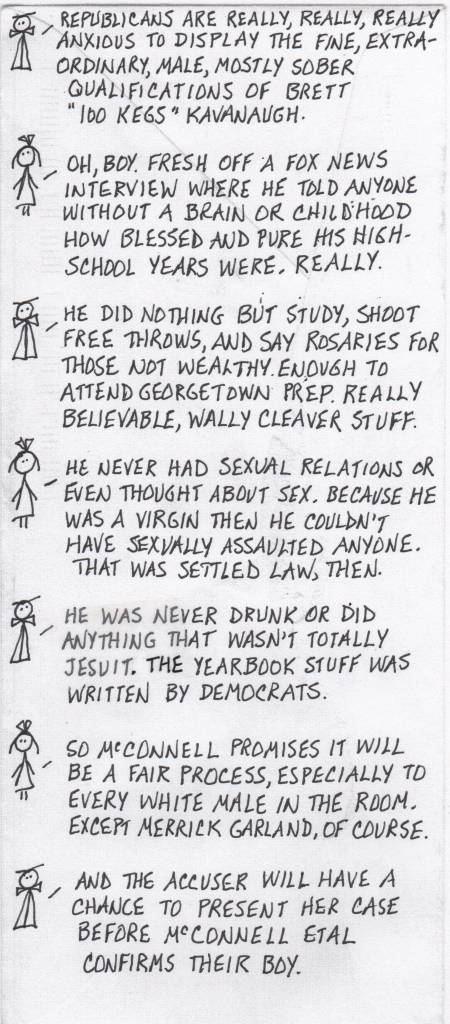 REPUBLICANS ARE REALLY, REALLY, REALLY
ANXIOUS TO DISPLAY THE FINE, EXTRA-
ORDINARY, MALE, MOSTLY SOBER
QUALIFICATIONS OF BRETT
"100 KEGS" KAVANAUGH.
OH, BOY. FRESH OFF A FOX NEWS
INTERVIEW WHERE HE TOLD ANYONE
WITHOUT A BRAIN OR CHILDHOOD
HOW BLESSED AND PURE HIS HIGH-
SCHOOL YEARS WERE. REALLY.
HE DID NOTHING BUT STUDY, SHOOT
FREE THROWS, AND SAY ROSARIES FOR
THOSE NOT WEALTHY ENOUGH TO
ATTEND GEORGETOWN PREP. REALLY
BELIEVABLE, WALLY CLEAVER STUFF.
HE NEVER HAD SEXUAL RELATIONS OR
EVEN THOUGHT ABOUT SEX. BECAUSE HE
WAS A VIRGIN THEN HE COULDN'T
HAVE SEXUALLY ASSAULTED ANYONE.
THAT WAS SETTLED LAW, THEN.
HE WAS NEVER DRUNK OR DID
ANYTHING THAT WASN'T TOTALLY
JESUIT. THE YEARBOOK STUFF WAS
WRITTEN BY DEMOCRATS.
SO McCONNELL PROMISES IT WILL
BE A FAIR PROCESS, ESPECIALLY TO
EVERY WHITE MALE IN THE ROOM.
EXCEPT MERRICK GARLAND, OF COURSE.
AND THE ACCUSER WILL HAVE A
CHANCE TO PRESENT HER CASE
BEFORE McCONNELL ETAL
CONFIRMS THEIR BOY.